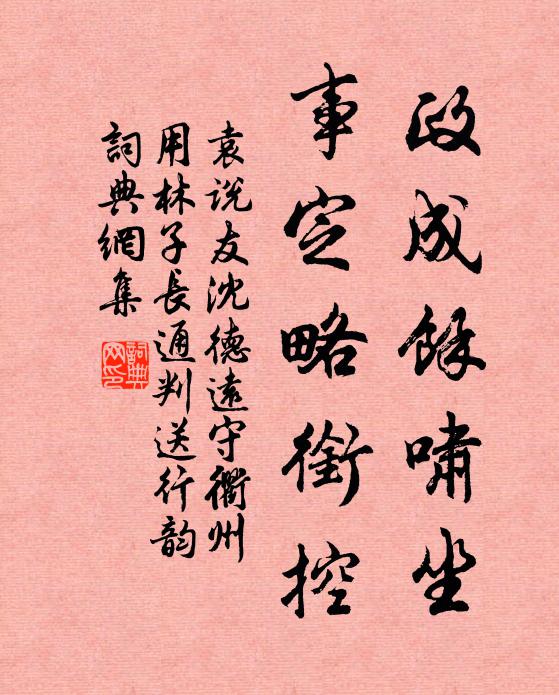 政成餘嘯坐
事定略銜控
袁说友沈德遠守衢州
用林子長通判送行韵
詞典網集
詞典网印